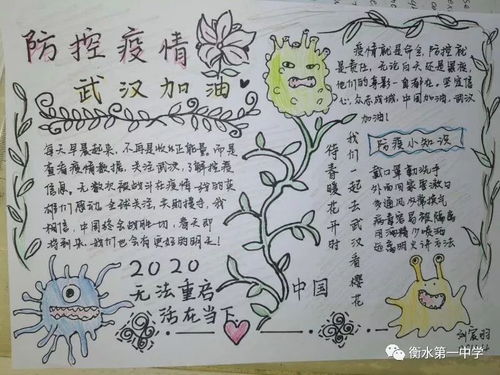 防控疫情
武汉加油
疫情就是命令,防控就
是责任,无论白天还是黑夜,
他们的身影一直都在,坚定信
心,众志成城,中国加油,武汉
加油!
每天早晨起来,不再是收
正能量,而是
查看疫情数据,关注武汉,了解控疫
信息,无数次被战斗在疫情一线的英
雄们感动,全球关注,
我
相信,中国终会战胜一切,春天即
将到来,我们也会有更好的明天!
防疫小知识
戴口罩勤洗手
多通风
病毒
隔离
用酒精
远离明火
方法
我们一起去武汉看樱花
待春暖花开时
2020
无法重启
活在当下
中国
衡水第一中学